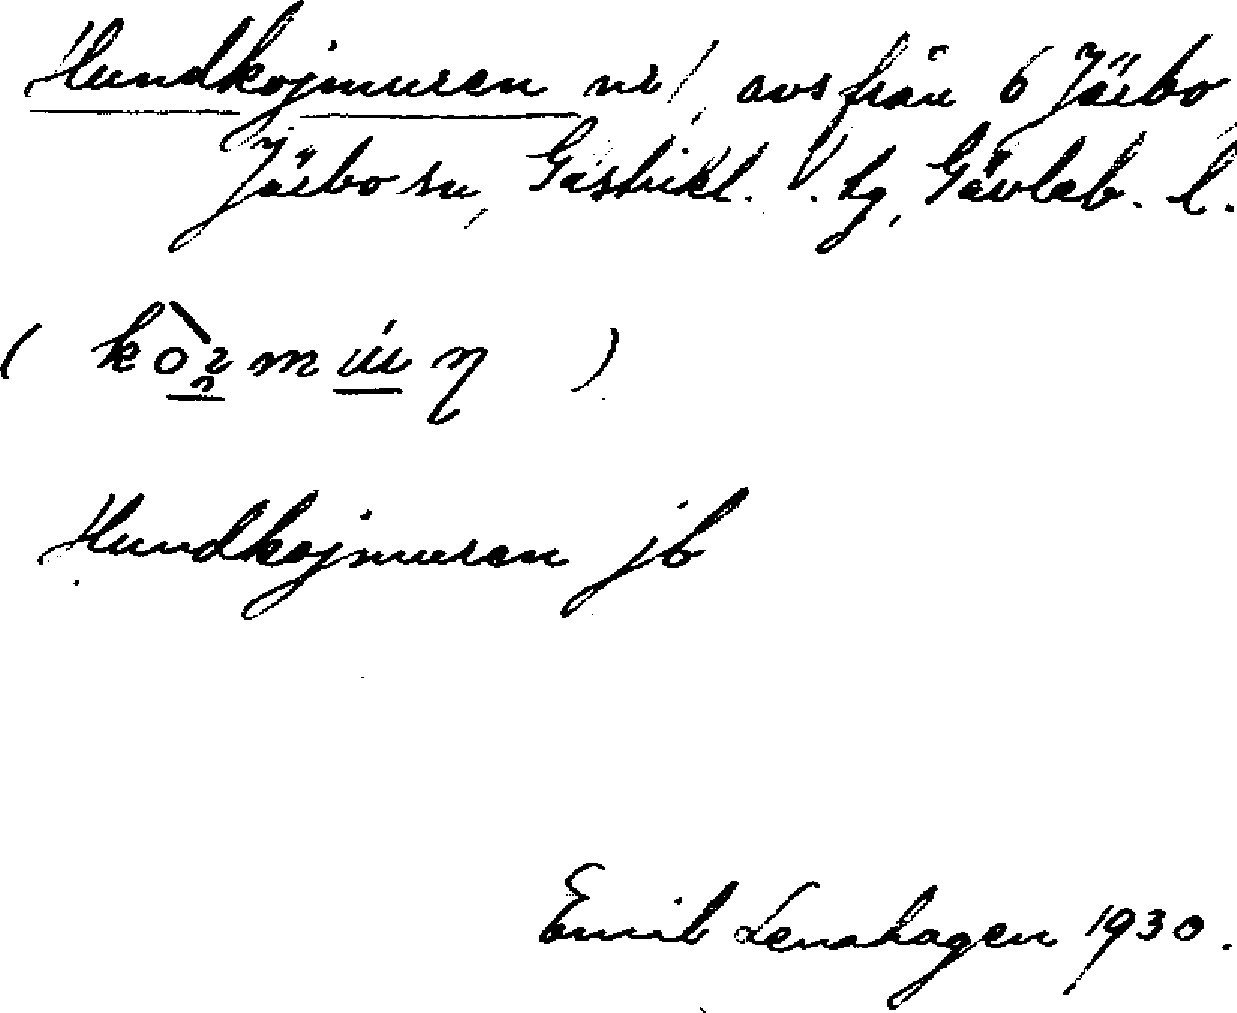 Hundkojmuren nr 1, avs från 6 Järbo
Järbo sn, Gästrikl. V. hg, Gävleb. l.
Hundkojmuren jb
Emil Lenahagen 1930.